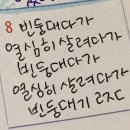 8 빈둥대다가
열심히 살려다가
빈둥대다가
열심히 살려다가
빈둥대기 로직